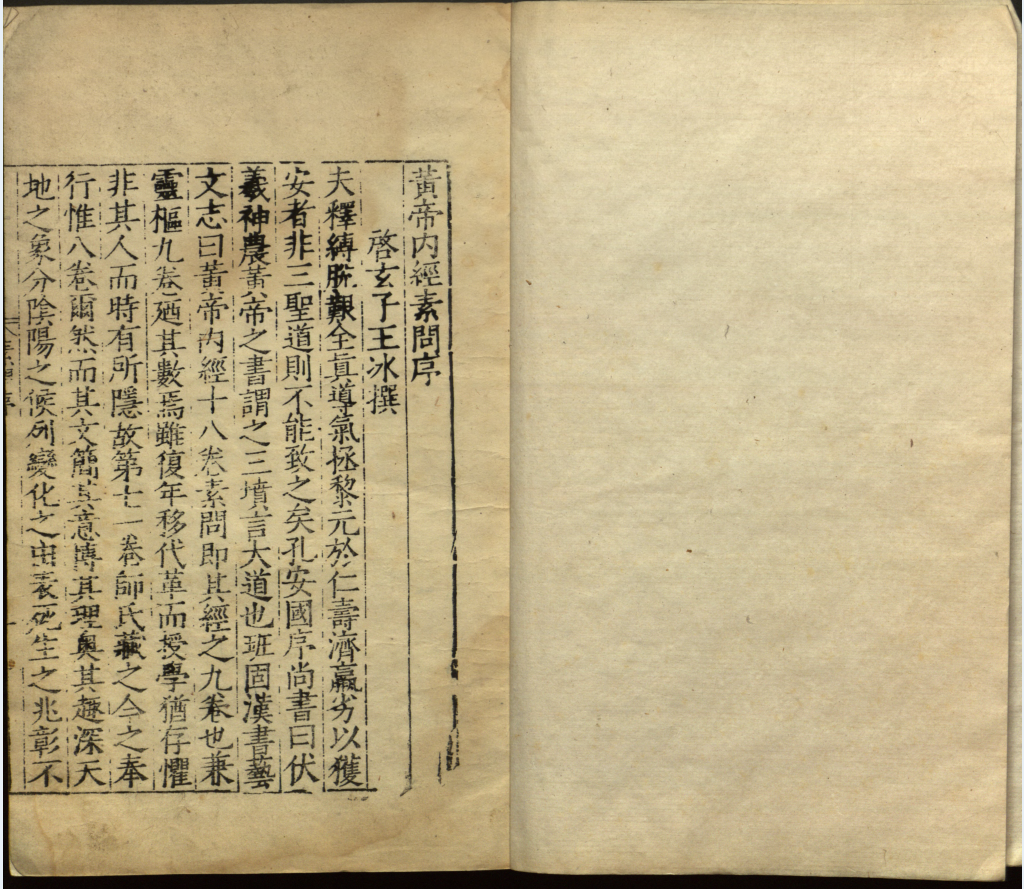 黃帝内經素問序
啓玄子王冰撰
夫釋縛脫艱全眞導氣拯黎元於仁壽濟羸劣以獲
安者非三聖道則不能致之矣孔安國序尚書曰伏
羲神農黃帝之書謂之三墳言大道也班固漢書藝
文志曰黃帝内經十八卷素問即其經之九卷也兼
靈樞九卷廼其數焉雖復年移代革而授學猶存懼
非其人而時有所隱故第七一卷師氏藏之今之奉
行惟八卷爾然而其文簡其意博其理奧其趣深天
地之象分陰陽之候列變化之由表死生之兆彰不